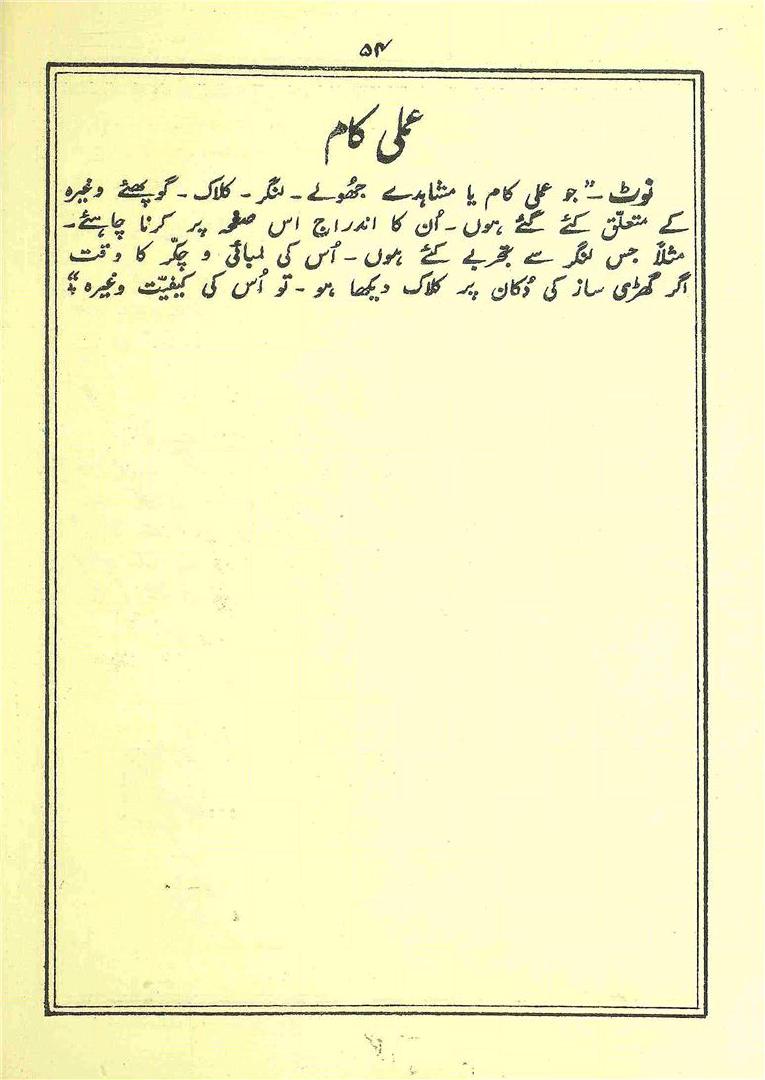 ۵۴
عملی کام
نوٹ۔ ”جو عملی کام یا مشاہدے جھُولے۔ لنگر۔ کلاک۔ گوپھئے وغیرہ
کے متعلّق کئے گئے ہوں۔ اُن کا اندراج اس صفحہ پر کرنا چاہئے۔
مثلاً جس لنگر سے تجربے کئے ہوں۔ اُس کی لمبائی و چکّر کا وقت
اگر گھڑی ساز کی دُکان پر کلاک دیکھا ہو۔ تو اُس کی کیفیّت وغیرہ“